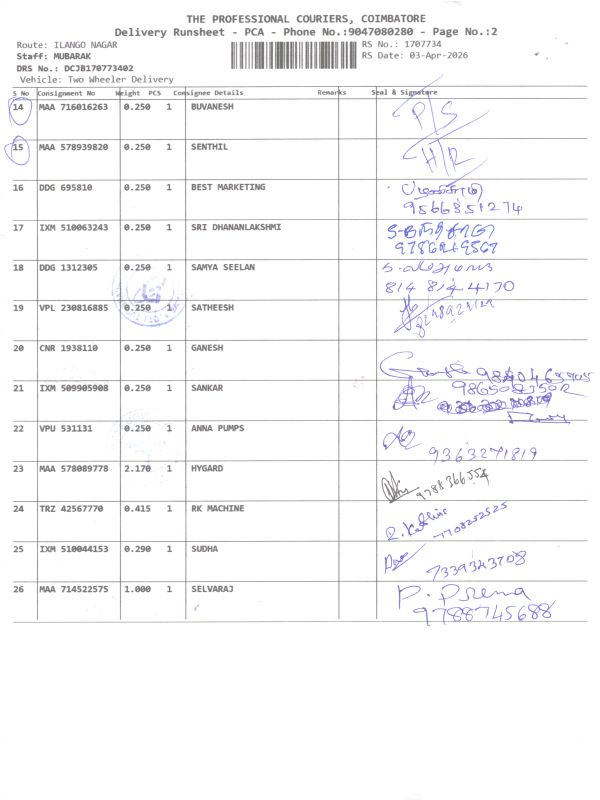 THE PROFESSIONAL COURIERS, COIMBATORE
Delivery Runsheet - PCA - Phone No.:9047080280 - Page No.:2
Route: ILANGO NAGAR RS No.: 1707734
Staff: MUBARAK RS Date: 03-Apr-2026
DRS No.: DCJB170773402
Vehicle: Two Wheeler Delivery
S No Consignment No Weight PCS Consignee Details Remarks Seal & Signature
14 MAA 716016263 0.250 1 BUVANESH P/S
15 MAA 578939820 0.250 1 SENTHIL H/R
16 DDG 695810 0.250 1 BEST MARKETING
9566851274
17 IXM 510063243 0.250 1 SRI DHANANLAKSHMI
9786219567
18 DDG 1312305 0.250 1 SAMYA SEELAN
814 814 4170
19 VPL 230816885 0.250 1 SATHEESH
20 CNR 1938110 0.250 1 GANESH
21 IXM 509905908 0.250 1 SANKAR
22 VPU 531131 0.250 1 ANNA PUMPS
9363271819
23 MAA 578089778 2.170 1 HYGARD
24 TRZ 42567770 0.415 1 RK MACHINE
7708252525
25 IXM 510044153 0.290 1 SUDHA
7339343708
26 MAA 714522575 1.000 1 SELVARAJ P. Prema
9788745688